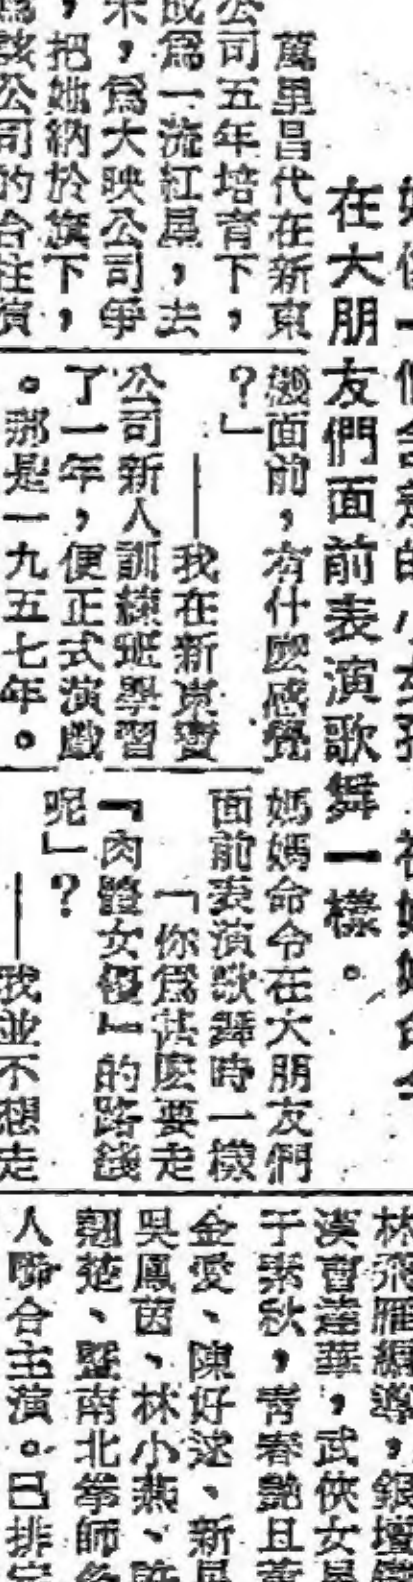 在大朋友們面前表演歌舞一樣。
萬里昌代在新東
公司五年培育下，
成爲一流紅星，去
，爲大映公司爭
，把她納於旗下，
爲該公司的台柱
面前，有什麽感覺
？」
——我在新東寶
公司新人訓練班學習
了一年，便正式演戲
。那是一九五七年。
媽媽命令在大朋友們
面前表演歌舞時一樣
「你爲甚麽要走
『肉體女優』的路綫
呢」？
——我並不想走
林飛雁編導，銀壇
漢曹達華，武俠女星
于素秋，靑春艶旦
金愛、陳好逑、新星
吳鳳茵、林小燕、
翹楚、暨南北拳師
人聯合主演。已排